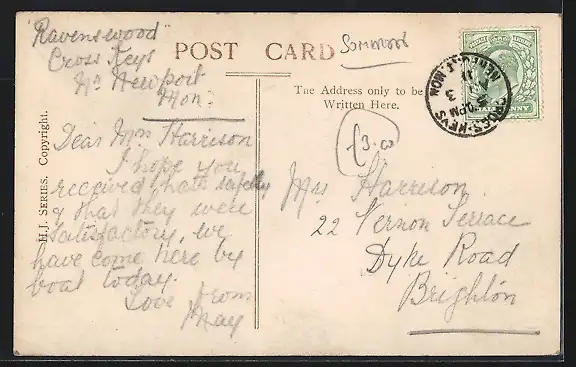 "Ravenswood"
Cross Keys
Nr Newport
Mon:
POST CARD
Dear Mrs Harrison
I hope you
received hats safely
& that they were
satisfactory, we
have come here by
boat today.
Love from
May
H.J. SERIES. Copyright.
The Address only to be
Written Here.
£3.00
Mrs Harrison.
22 Vernon Terrace
Dyke Road
Brighton
CROSS-KEYS
NEWPORT MON